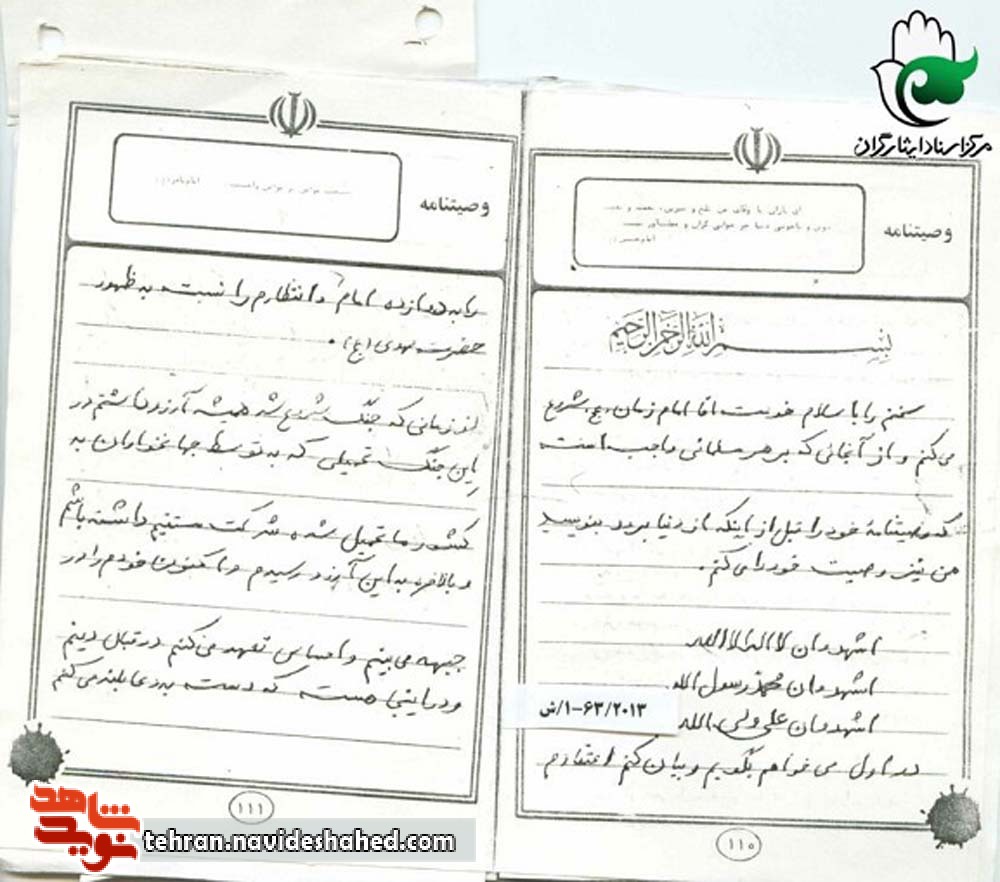 مرکز اسناد ایثارگران
وصیتنامه
بسم الله الرحمن الرحیم
سخنم را با سلام خدمت آقا امام زمان (عج) شروع
می کنم و از آنجائی که بر هر مسلمانی واجب است
که وصیتنامه خود را قبل از اینکه از دنیا برود بنویسد
من نیز وصیت خود را می کنم.
اشهد و ان لا اله الا الله
اشهد و ان محمد رسول الله
اشهد و ان علی ولی الله
در اول می خواهم بگویم و بیان کنم اعتقادم
۱۱۰
وصیتنامه
را به دوازده امام و انتظارم را نسبت به ظهور
حضرت مهدی (عج).
از زمانی که جنگ شروع شد همیشه آرزو داشتم در
این جنگ تحمیلی که به توسط جهانخواران به
کشور ما تحمیل شده شرکت مستقیم داشته باشم
و بالاخره به این آرزو رسیدم و تا کنون خودم را در
جبهه می بینم و احساس تعهد می کنم در قبال دینم
و در اینجا هست که دست به دعا بلند می کنم
۱۱۱
۱-۶۳/۲۰۱۳/ش
نوید شاهد
tehran.navideshahed.com